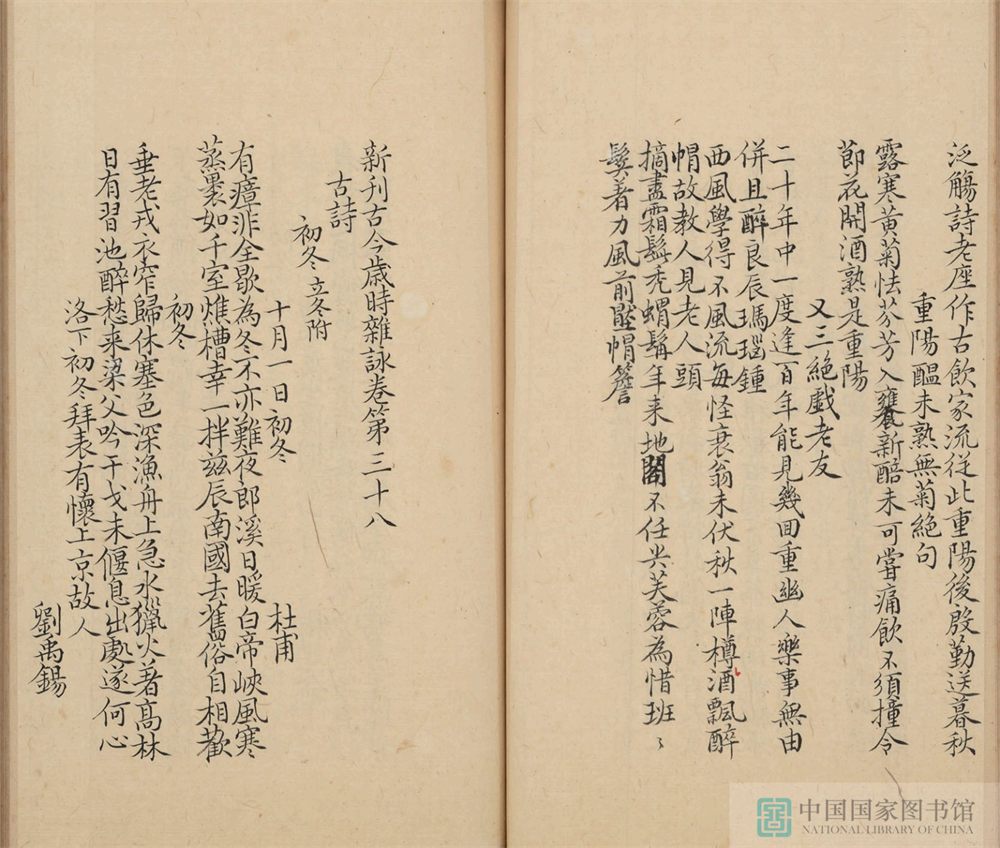 泛觴詩老座作古飲家流従此重陽後殷勤送暮秋
重陽醖未熟無菊絕句
露寒黃菊怯芬芳入甕新醅未可嘗痛飲不須撞令
節花開酒熟是重陽
又三絕戲老友
二十年中一度逢百年能見幾回重幽人樂事無由
併且醉良辰瑪瑙鍾
西風學得不風流每怪衰翁未伏秋一陣樽酒飄醉
帽故教人見老人頭
摘盡霜髭禿蝟鬚年来地閣不任共芙蓉為惜班〻
鬓著力風前壓帽簷
新刊古今歲時雜詠卷第三十八
古詩
初冬 立冬附
十月一日 初冬 杜甫
有瘴非全歇為冬不亦難夜郎溪日暖白帝峽風寒
蒸裹如千室燋糟幸一拌茲辰南國去舊俗自相歡
初冬
垂老戎衣窄歸休塞色深漁舟上急水獵火著高林
日有習池醉愁来梁父吟干戈未偃息出處遂何心
洛下初冬拜表有懷上京故人
劉禹錫
中国国家图书馆
NATIONAL LIBRARY OF CHINA